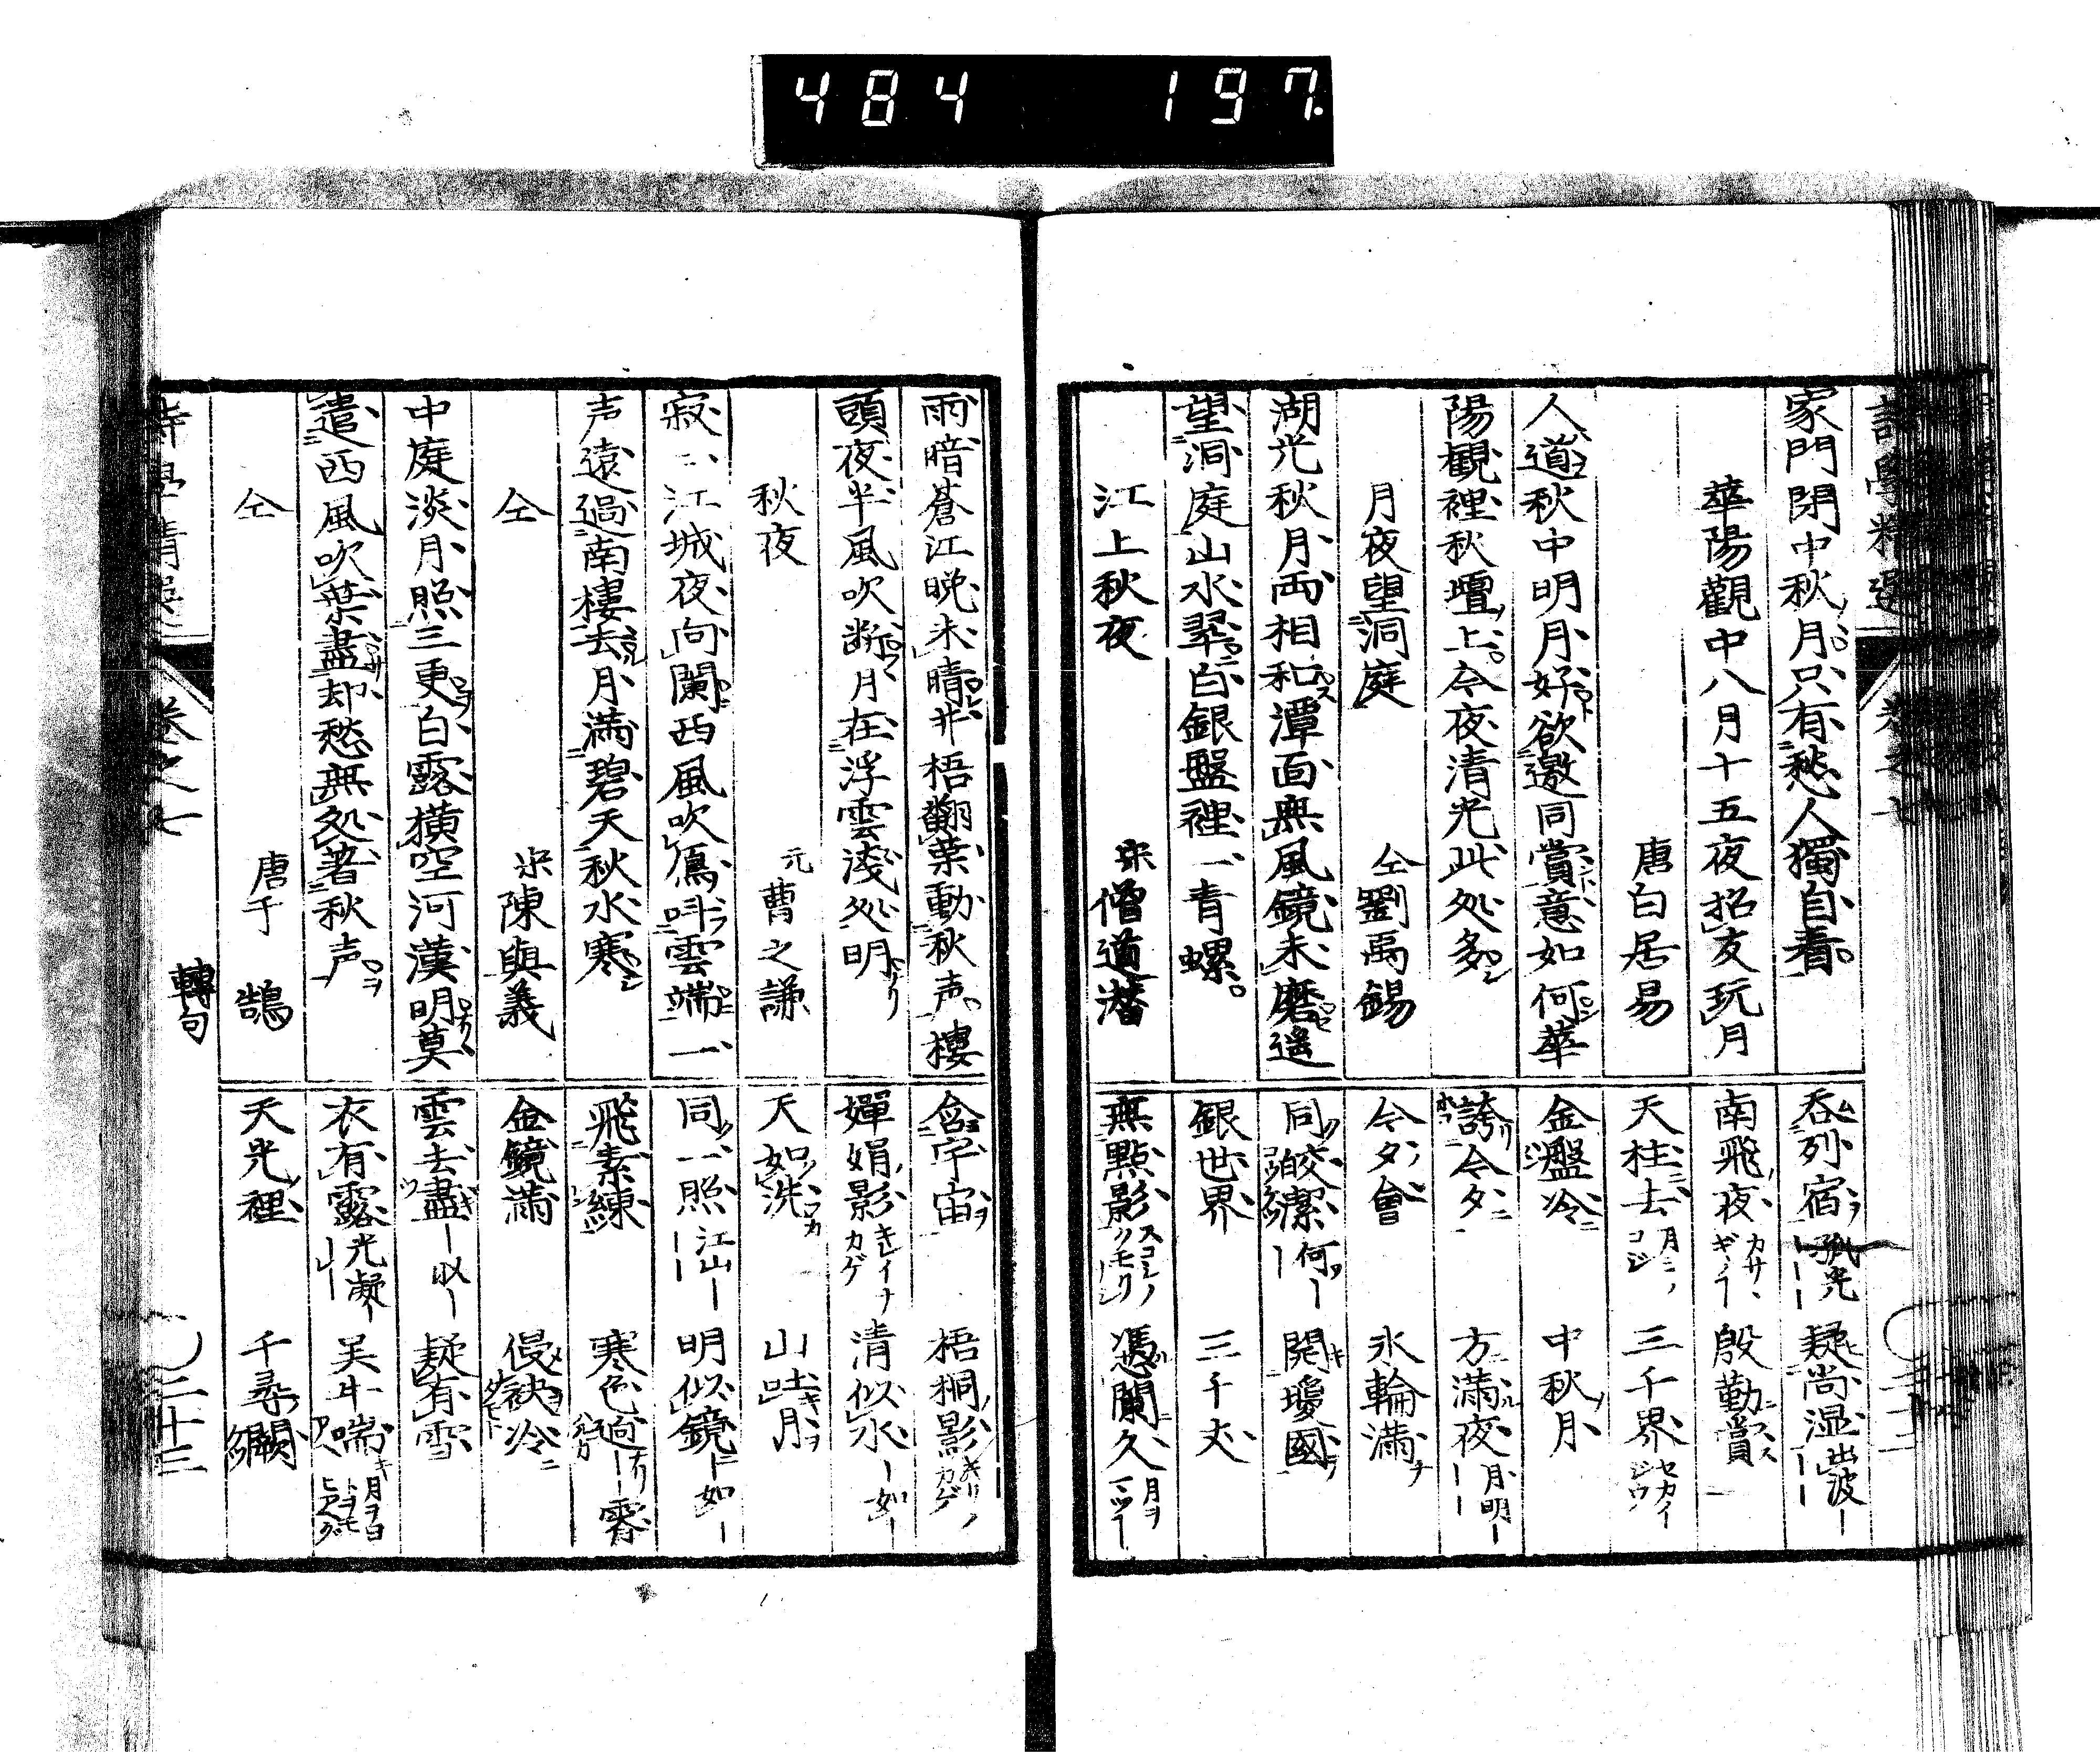 484 197
家門閉中秋月只有愁人獨自看
華陽觀中八月十五夜招友玩月
唐白居易
人道秋中明月好欲邀同賞意如何華
陽観裡秋壇上今夜清光此処多
月夜望洞庭 仝劉禹錫
湖光秋月両相和潭面無風鏡未磨遥
望洞庭山水翠白銀盤裡一青螺
江上秋夜 宋僧道潜
呑列宿 孤光 疑尚湿 出波
南飛夜 カサヽギノ 殷勤賞
天柱去 月ニノコジ 三千界 セカイジウ
金盤冷 中秋月
誇今夕 方満夜 月明
今夕會 氷輪満
同皎潔 何 開瓊國
銀世界 三千丈
無點影 スコシノクモリ 憑闌久 月ヲミツ
雨暗蒼江晩未晴井梧翻葉動秋声楼
頭夜半風吹断月在浮雲浅処明
秋夜 元曹之謙
寂〻江城夜向闌西風吹鴈呌雲端一
声遠過南樓去月満碧天秋水寒
仝 宋陳與義
中庭淡月照三更白露横空河漢明莫
遣西風吹葉盡却愁無処著秋声
仝 唐于鵠
轉句
含宇宙 梧桐影 キリノカゲ
嬋娟影 キレイナカゲ 清似水 如
天如洗 山吐月
同一照 江山 明似鏡 如
飛素練 寒色逈 霽
金鏡満 侵袂冷
雲去盡 以 疑有雪
衣有露 光凝 呉牛喘 月ヲ日トヲモヒアヘグ
天光裡 千尋闕
巻之七
二十三